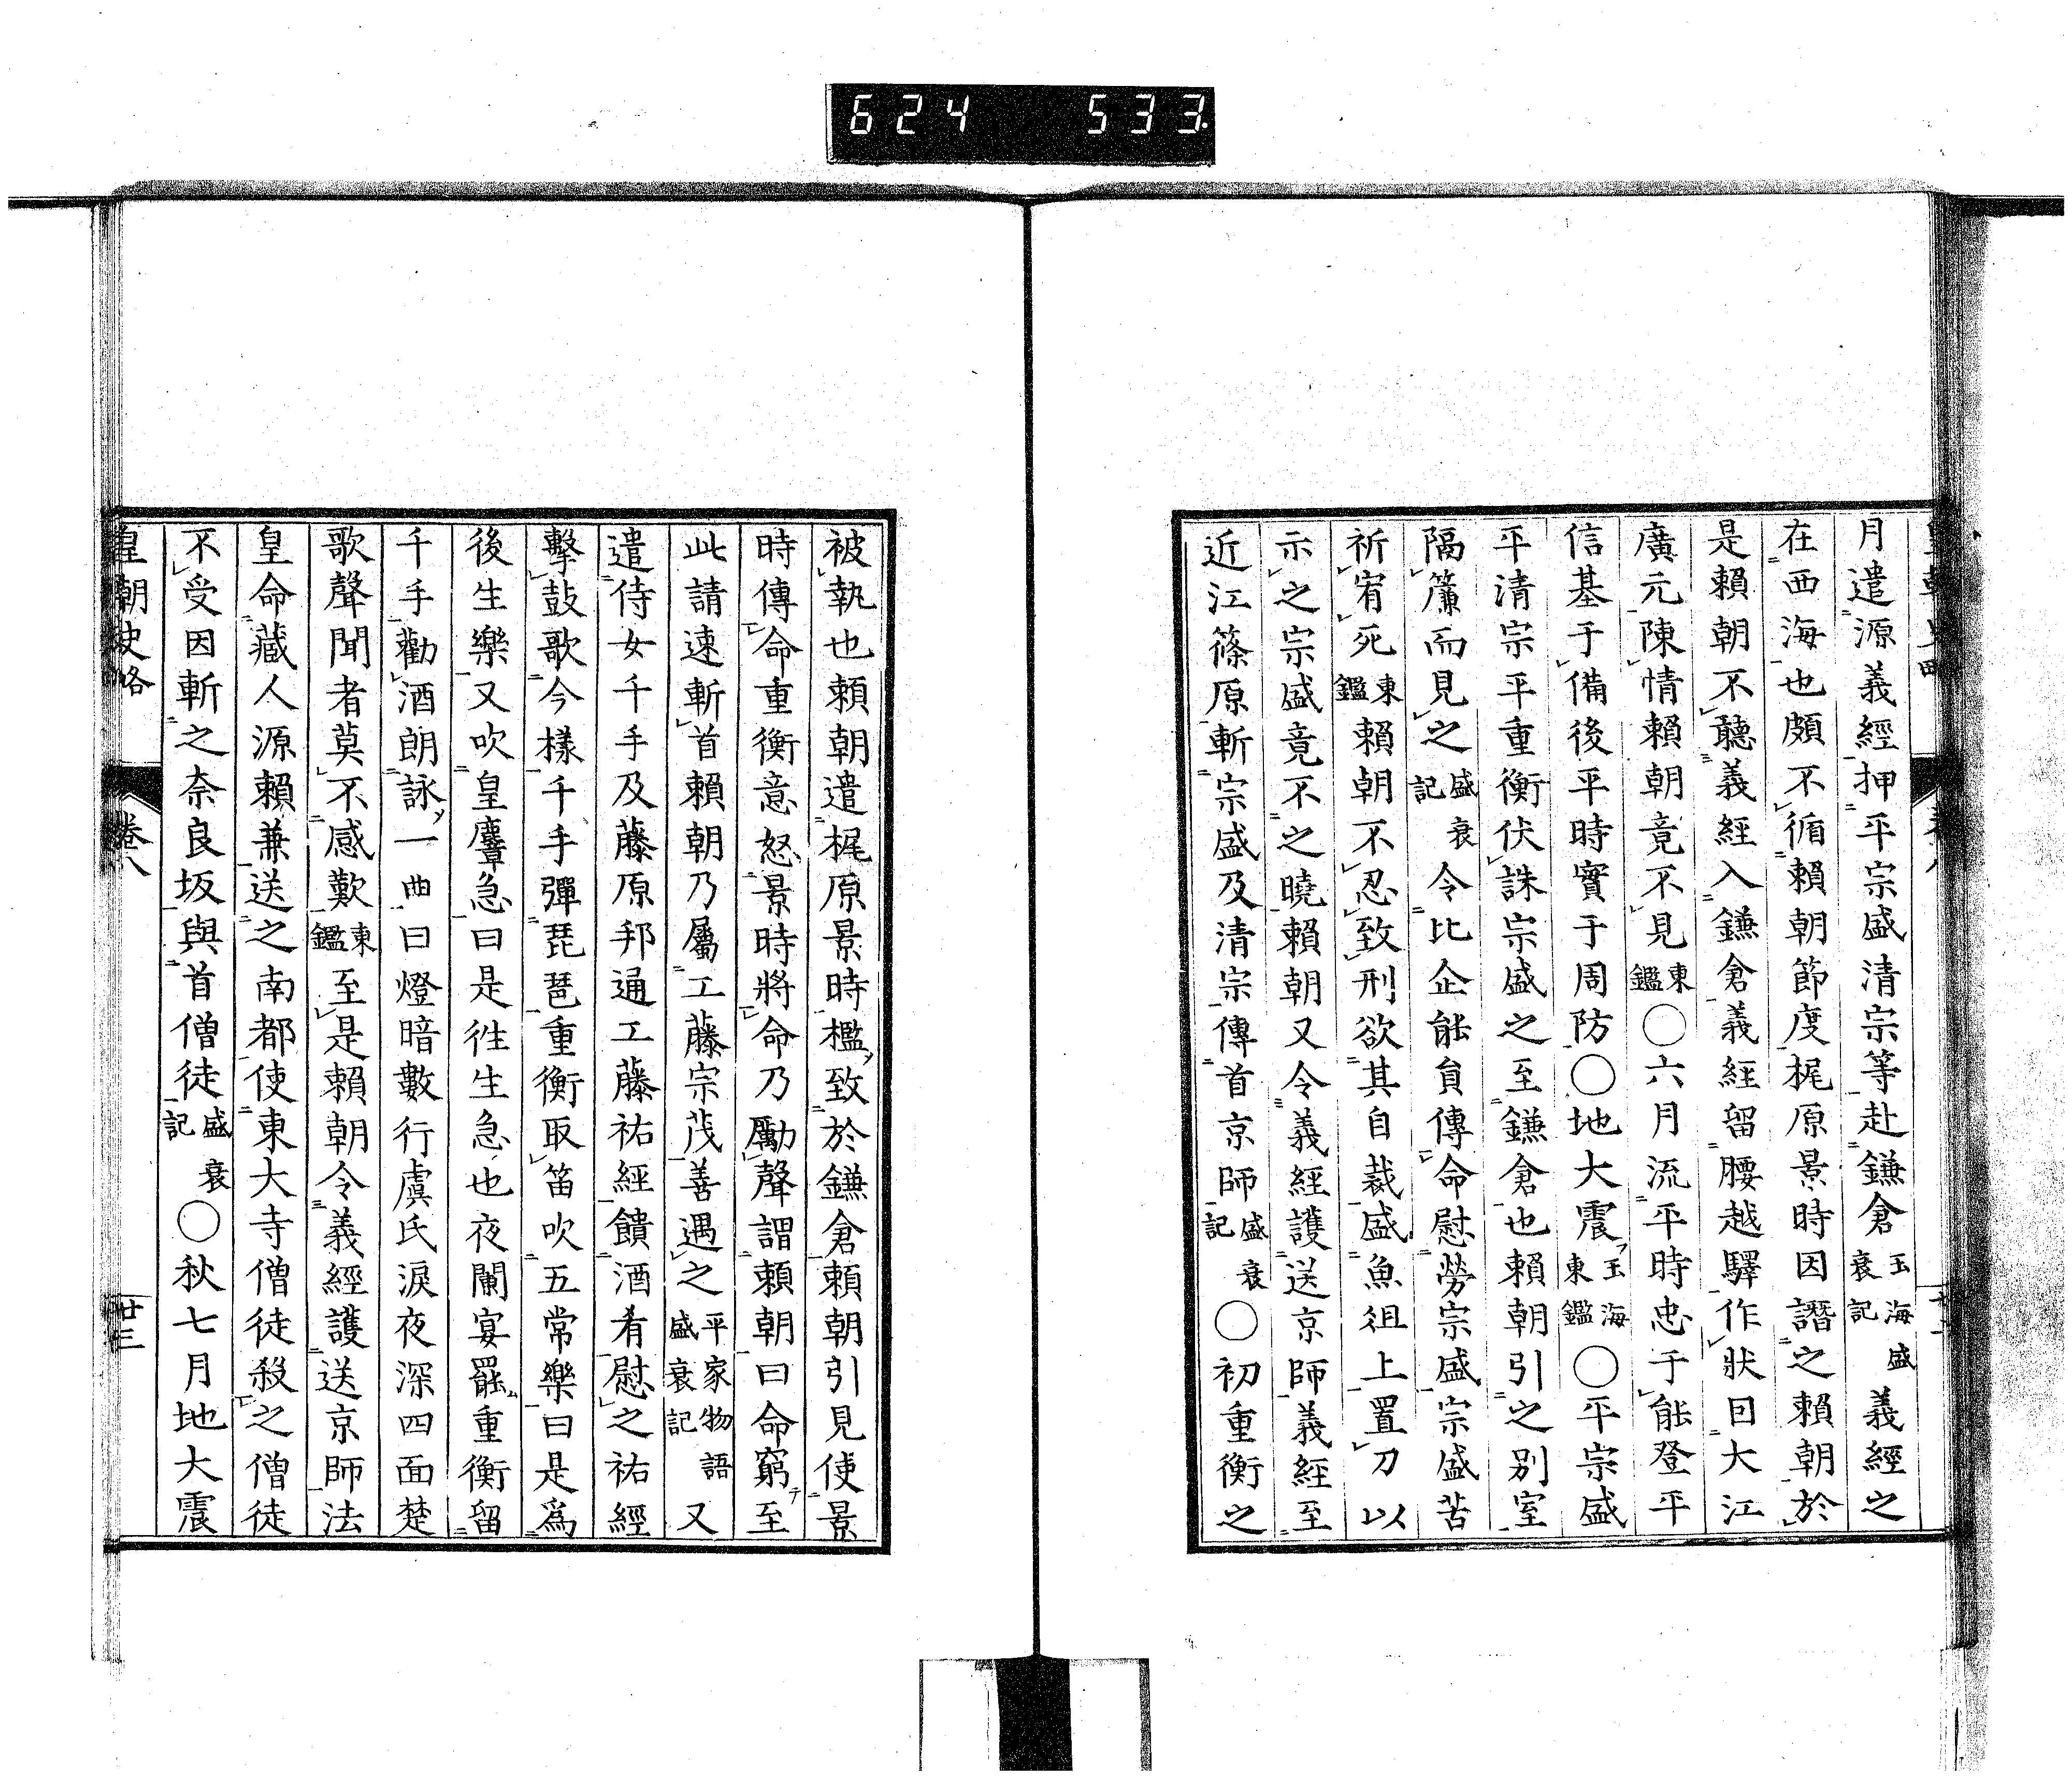 624 533.
月遣源義經押平宗盛清宗等赴鎌倉玉海盛衰記義經之
在西海也頗不循賴朝節度梶原景時因譖之賴朝於
是賴朝不聽義經入鎌倉義經留腰越驛作狀因大江
廣元陳情賴朝竟不見東鑑○六月流平時忠于能登平
信基于備後平時實于周防○地大震玉海東鑑○平宗盛
平清宗平重衡伏誅宗盛之至鎌倉也賴朝引之別室
隔簾而見之盛衰記令比企能員傳命慰勞宗盛宗盛苦
祈宥死東鑑賴朝不忍致刑欲其自裁盛魚俎上置刀以
示之宗盛竟不之曉賴朝又令義經護送京師義經至
近江篠原斬宗盛及清宗傳首京師盛衰記○初重衡之
被執也賴朝遣梶原景時檻致於鎌倉賴朝引見使景
時傳命重衡意怒景時將命乃勵聲謂賴朝曰命窮至
此請速斬首賴朝乃屬工藤宗茂善遇之平家物語盛衰記又
遣侍女千手及藤原邦通工藤祐經饋酒肴慰之祐經
擊鼓歌今樣千手彈琵琶重衡取笛吹五常樂曰是爲
後生樂又吹皇麞急曰是徃生急也夜闌宴罷重衡留
千手勸酒朗詠一曲曰燈暗數行虞氏淚夜深四面楚
歌聲聞者莫不感歎東鑑至是賴朝令義經護送京師法
皇命藏人源賴兼送之南都使東大寺僧徒殺之僧徒
不受因斬之奈良坂與首僧徒盛衰記○秋七月地大震
皇朝史略 卷八 廿三